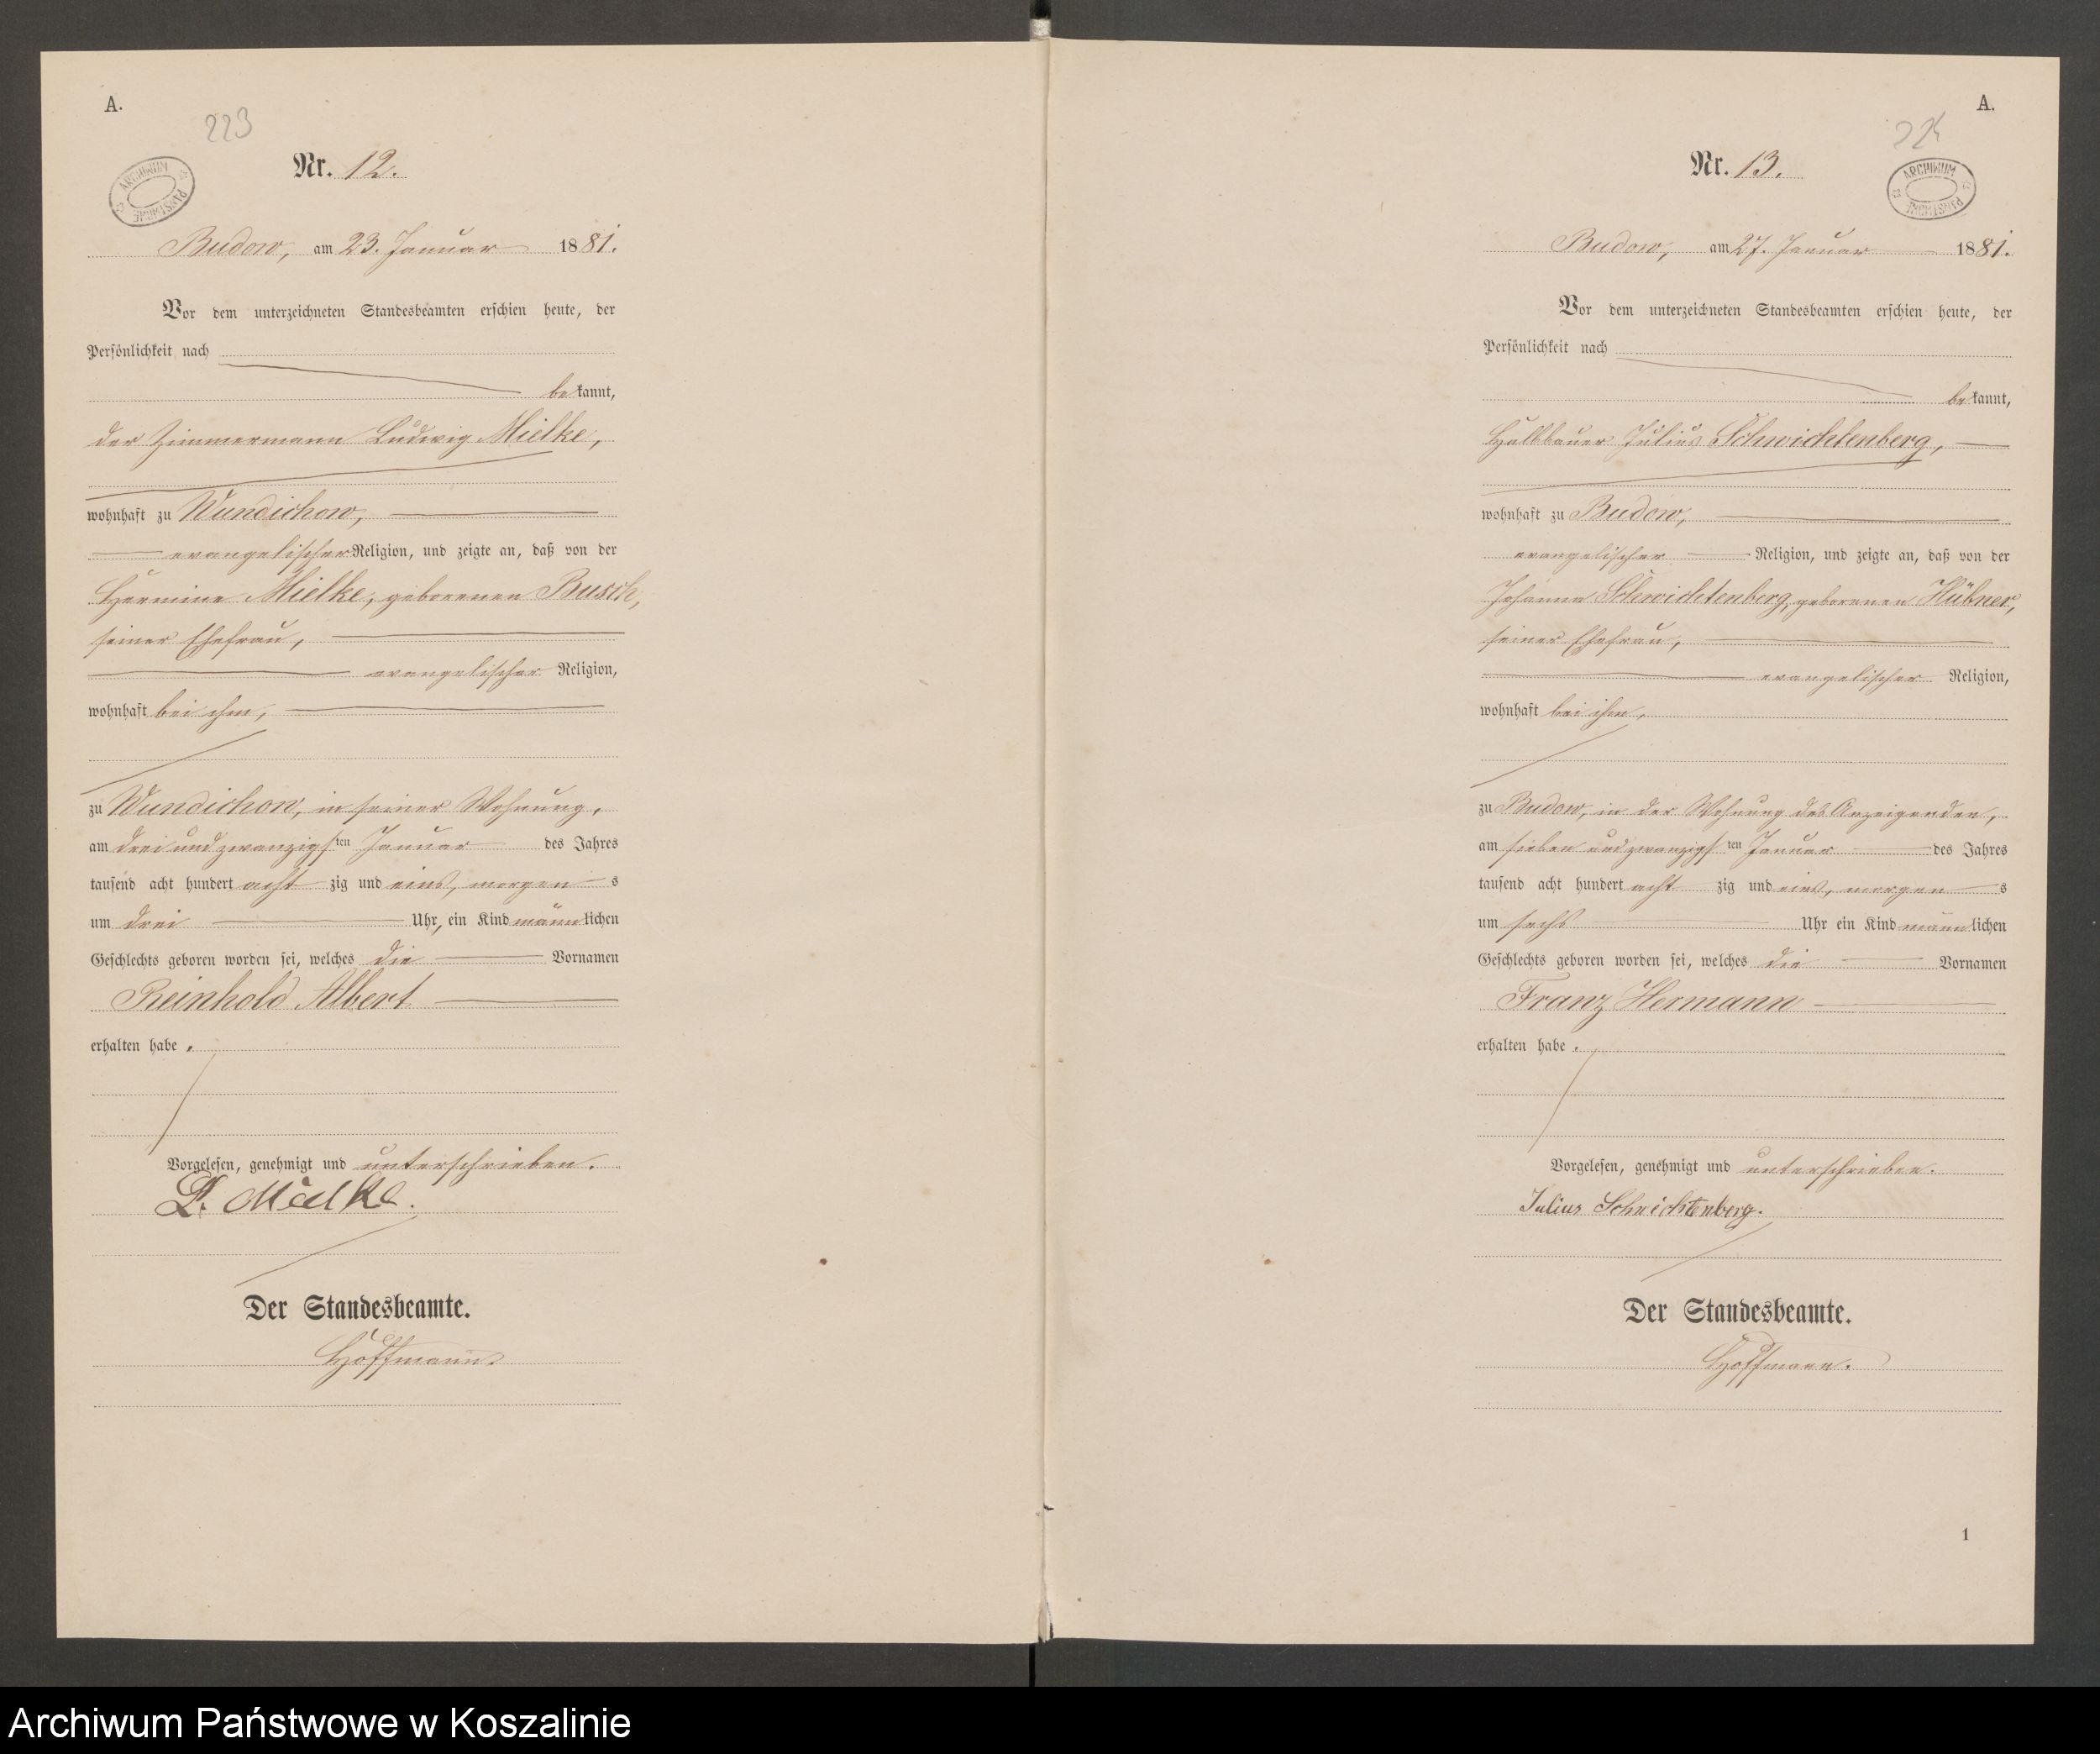 A.
223
Nr. 12.
ARCHIWUM PAŃSTWOWE
Budow, am 23. Januar 1881.
Vor dem unterzeichneten Standesbeamten erschien heute, der
Persönlichkeit nach
bekannt,
der Zimmermann Ludwig Mielke,
wohnhaft zu Wundichow,
evangelischer Religion, und zeigte an, daß von der
Hermine Mielke, geborenen Busch,
seiner Ehefrau,
evangelischer Religion,
wohnhaft bei ihm,
zu Wundichow, in seiner Wohnung,
am drei und zwanzigsten Januar des Jahres
tausend acht hundert achtzig und eins, morgens
um drei Uhr, ein Kind männlichen
Geschlechts geboren worden sei, welches die Vornamen
Reinhold Albert
erhalten habe.
Vorgelesen, genehmigt und unterschrieben.
L. Mielke.
Der Standesbeamte.
Hoffmann.
A.
224
Nr. 13.
ARCHIWUM PAŃSTWOWE
Budow, am 27. Januar 1881.
Vor dem unterzeichneten Standesbeamten erschien heute, der
Persönlichkeit nach
bekannt,
Halbbauer Julius Schwichtenberg,
wohnhaft zu Budow,
evangelischer Religion, und zeigte an, daß von der
Johanne Schwichtenberg, geborenen Hübner,
seiner Ehefrau,
evangelischer Religion,
wohnhaft bei ihm,
zu Budow, in der Wohnung des Anzeigenden,
am sieben und zwanzigsten Januar des Jahres
tausend acht hundert achtzig und eins, morgens
um sechs Uhr ein Kind männlichen
Geschlechts geboren worden sei, welches die Vornamen
Franz Hermann
erhalten habe.
Vorgelesen, genehmigt und unterschrieben.
Julius Schwichtenberg.
Der Standesbeamte.
Hoffmann.
1
Archiwum Państwowe w Koszalinie